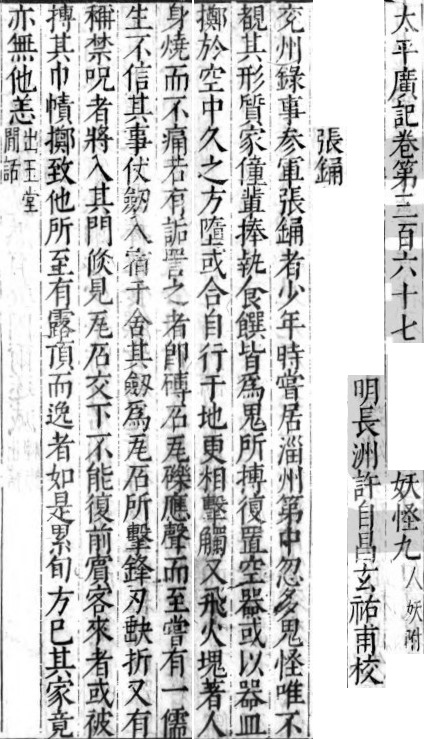 太平廣記卷第三百六十七
妖怪九 人妖附
明長洲許自昌玄祐甫校
張鋪
兖州錄事參軍張鋪者少年時嘗居淄州第中忽多鬼怪唯不
覩其形質家僮輩捧執食饌皆爲鬼所搏復置空器或以器皿
擲於空中久之方墮或合自行于地更相擊觸又飛火塊著人
身燒而不痛若有詬詈之者卽磚石瓦礫應聲而至嘗有一儒
生不信其事仗劒入宿于舍其劒爲瓦石所擊鋒刃缺折又有
稱禁呪者將入其門倐見瓦石交下不能復前賓客來者或被
摶其巾幘擲致他所至有露頂而逸者如是累旬方已其家竟
亦無他恙 出玉堂閒話